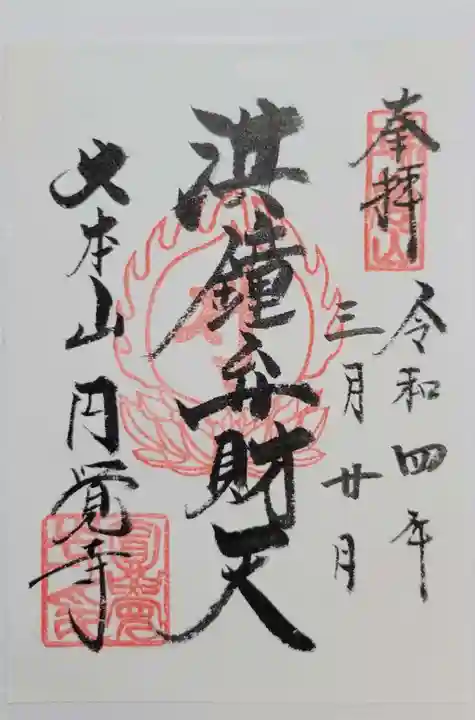 奉拝
令和四年
三月廿日
洪鐘弁財天
大本山円覚寺